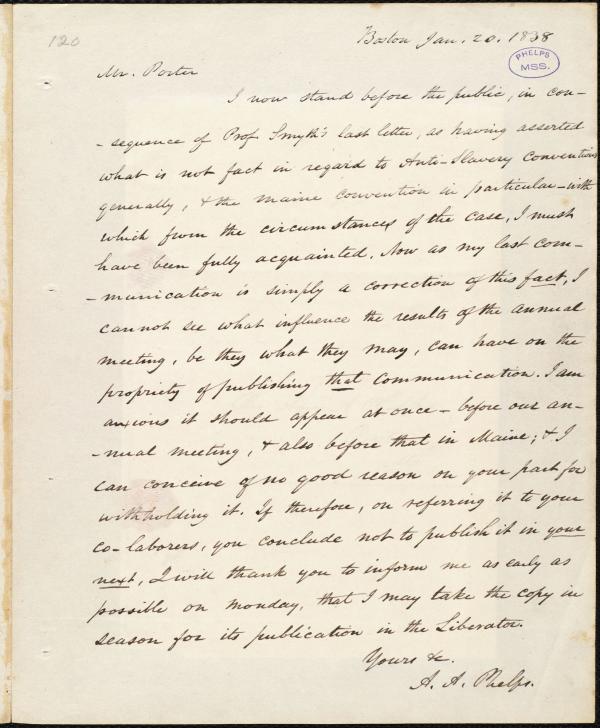 120
Boston Jan. 20. 1838
PHELPS
MSS.
Mr. Porter
I now stand before the public, in con-
-sequence of Prof Smyth's last letter, as having asserted
what is not fact in regard to Anti-Slavery Conventions
generally, & the Maine Convention in particular - with
which from the circumstances of the case, I must
have been fully acquainted. Now as my last com-
-munication is simply a correction of this fact, I
cannot see what influence the results of the annual
meeting, be they what they may, can have on the
propriety of publishing that communication. I am
anxious it should appear at once - before our an-
-nual meeting, & also before that in Maine; & I
can conceive of no good reason on your part for
withholding it. If therefore, on referring it to your
co-laborers, you conclude not to publish it in your
next, I will thank you to inform me as early as
possible on monday, that I may take the copy in
season for its publication in the Liberator.
Yours &c.
A. A. Phelps.